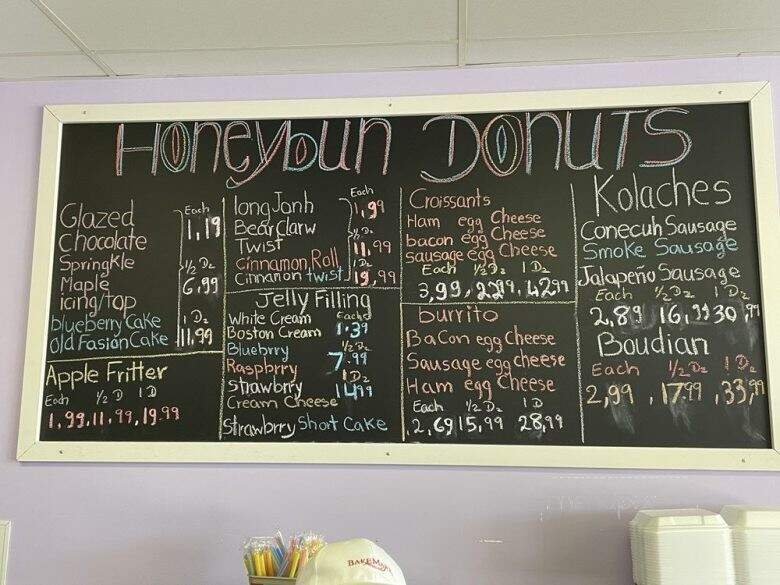 Honeybun Donuts
Glazed
Chocolate
Springkle
Maple
icing/top
blueberry Cake
Old Fasion Cake
Each
1,19
½ Dz
6,99
1 Dz
11,99
Apple Fritter
Each ½ D 1 D
1,99, 11,99, 19.99
long Jonh
Bear Clarw
Twist
Cinnamon Roll
Cinnamon twist
Each
1,99
½ Dz
11,99
1 Dz
19,99
Jelly Filling
White Cream
Boston Cream
Bluebrry
Raspbrry
Strawbrry
Cream Cheese
Strawbrry Short Cake
Each
1.39
½ Dz
7.99
1 Dz
14,99
Croissants
Ham egg Cheese
bacon egg Cheese
sausage egg Cheese
Each ½ Dz 1 Dz
3,99, 22,99, 42,99
burrito
BaCon egg Cheese
Sausage egg cheese
Ham egg Cheese
Each ½ Dz 1 D
2,69 15,99 28,99
Kolaches
Conecuh Sausage
Smoke Sausage
Jalapeño Sausage
Each ½ Dz 1 Dz
2,89 16,99 30,99
Boudian
Each ½ Dz 1 Dz
2,99, 17.99, 33,99